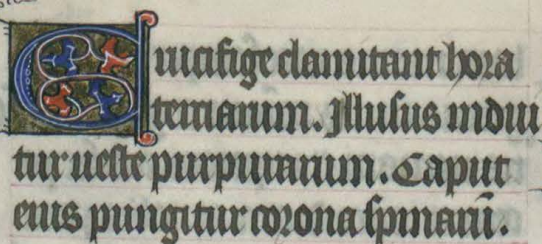 Crucifige clamitant hora
tertiarum. Illusus indui
tur ueste purpurarum. Caput
eius pungitur corona spinarū.